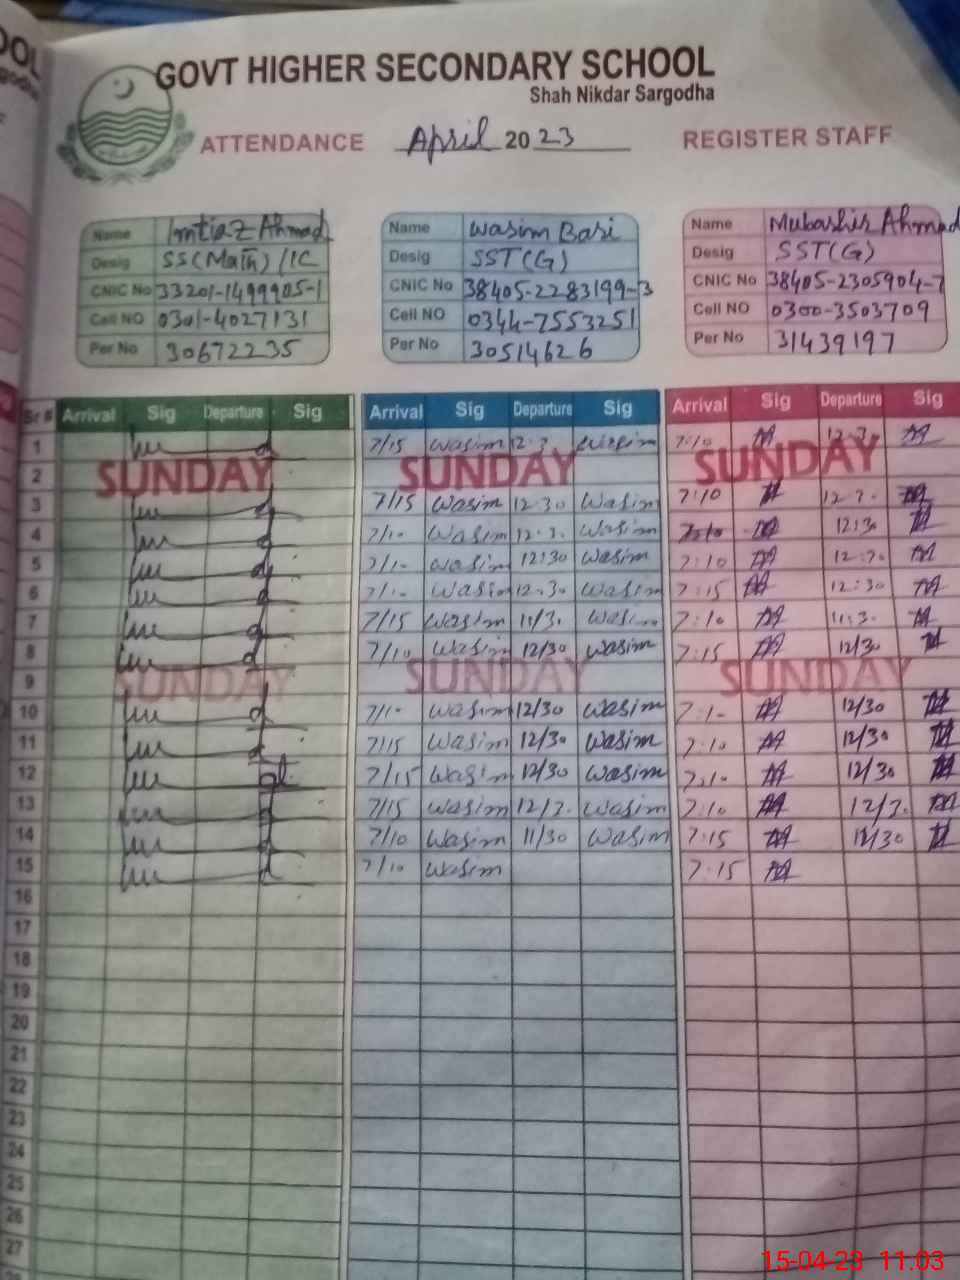 GOVT HIGHER SECONDARY SCHOOL
Shah Nikdar Sargodha
ATTENDANCE April 2023 REGISTER STAFF
Name Imtiaz Ahmad
Desig SS(Math)/IC
CNIC No 33201-1499905-1
Cell NO 0301-4027131
Per No 30672235
Name Wasim Bari
Desig SST(G)
CNIC No 38405-2283199-3
Cell NO 0344-7553251
Per No 30514626
Name Mubashir Ahmad
Desig SST(G)
CNIC No 38405-2305904-7
Cell NO 0300-3503709
Per No 31439197
Sr # Arrival Sig Departure Sig Arrival Sig Departure Sig Arrival Sig Departure Sig
1 7/15 Wasim 12:3. Wasim 7:10 12:30
2 SUNDAY SUNDAY SUNDAY
3 7/15 Wasim 12:30 Wasim 7:10 12:3.
4 7/1. Wasim 12:3. Wasim 12:3.
5 7/1. Wasim 12:30 Wasim 7:10 12:3.
6 7/1. Wasim 12:30 Wasim 7:15 12:30
7 7/15 Wasim 11/3. Wasim 7:10 11:3.
8 7/10 Wasim 12/30 Wasim 7:15 12/30
9 SUNDAY SUNDAY SUNDAY
10 7/1. Wasim 12/30 Wasim 7:1. 12/30
11 7/15 Wasim 12/30 Wasim 7:10 12/30
12 7/15 Wasim 12/30 Wasim 7:1. 12/30
13 7/15 Wasim 12/3. Wasim 7:10 12/3.
14 7/10 Wasim 11/30 Wasim 7:15 11/30
15 7/10 Wasim 7:15
16
17
18
19
20
21
22
23
24
25
26
27
15-04-23 11.03